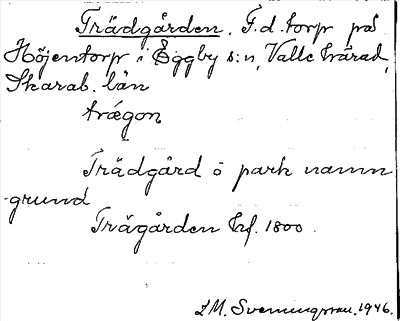 Trädgården. F.d. torp på
Höjentorp i Eggby s:n, Valle härad,
Skarab. län
trǽgon
Trädgård o park namn
grund
Trägården Hf. 1800.
L M. Svenungsson. 1946.